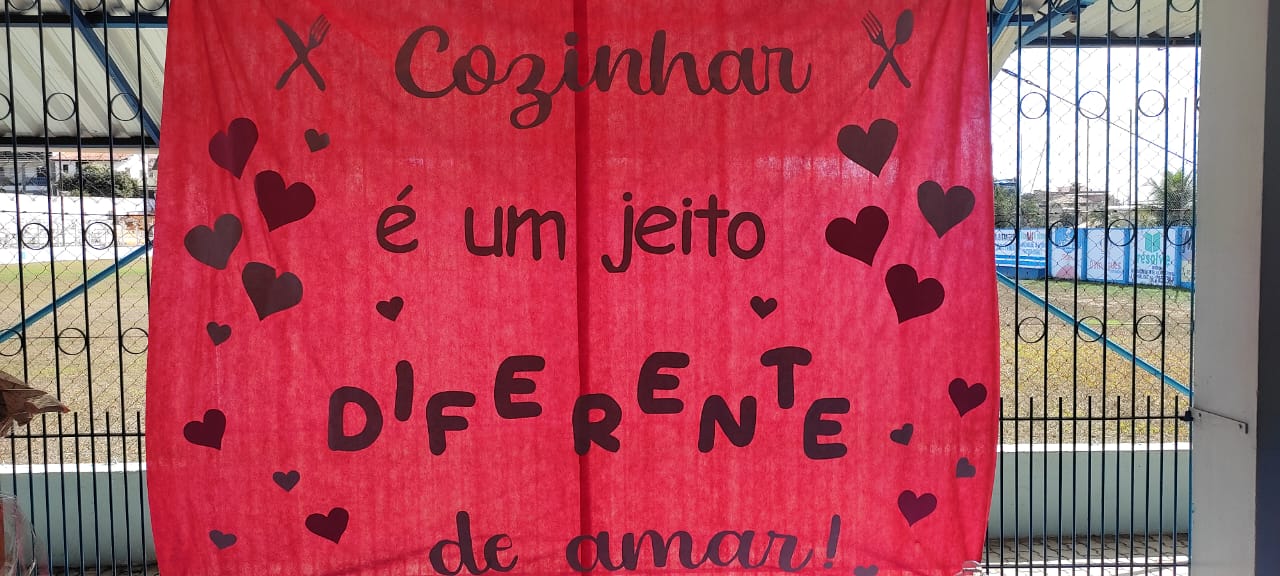 Cozinhar
é um jeito
DIFERENTE
de amar!
resolve.